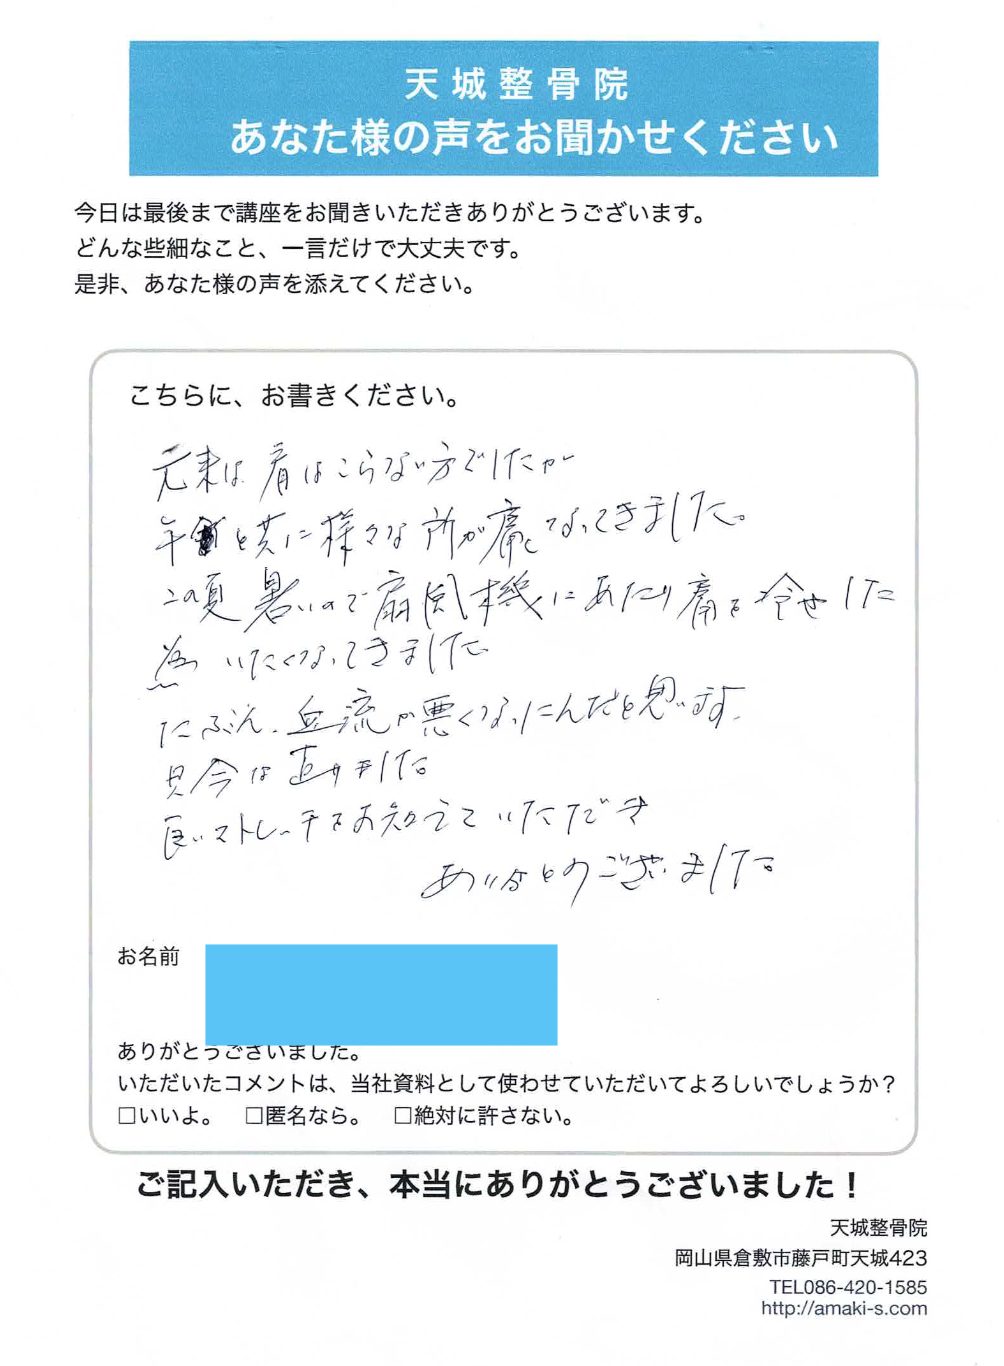 天城整骨院
あなた様の声をお聞かせください
今日は最後まで講座をお聞きいただきありがとうございます。
どんな些細なこと、一言だけで大丈夫です。
是非、あなた様の声を添えてください。
こちらに、お書きください。
元来は肩はこらない方でしたが
年と共に様々な所が痛くなってきました。
この夏暑いので扇風機にあたり肩を冷やした
為いたくなってきました
たぶん、血流が悪くなったんだと思います。
只今は直りました。
良いストレッチをお教えていただき
ありがとうございました。
お名前
ありがとうございました。
いただいたコメントは、当社資料として使わせていただいてよろしいでしょうか？
□いいよ。 □匿名なら。 □絶対に許さない。
ご記入いただき、本当にありがとうございました！
天城整骨院
岡山県倉敷市藤戸町天城423
TEL086-420-1585
http://amaki-s.com